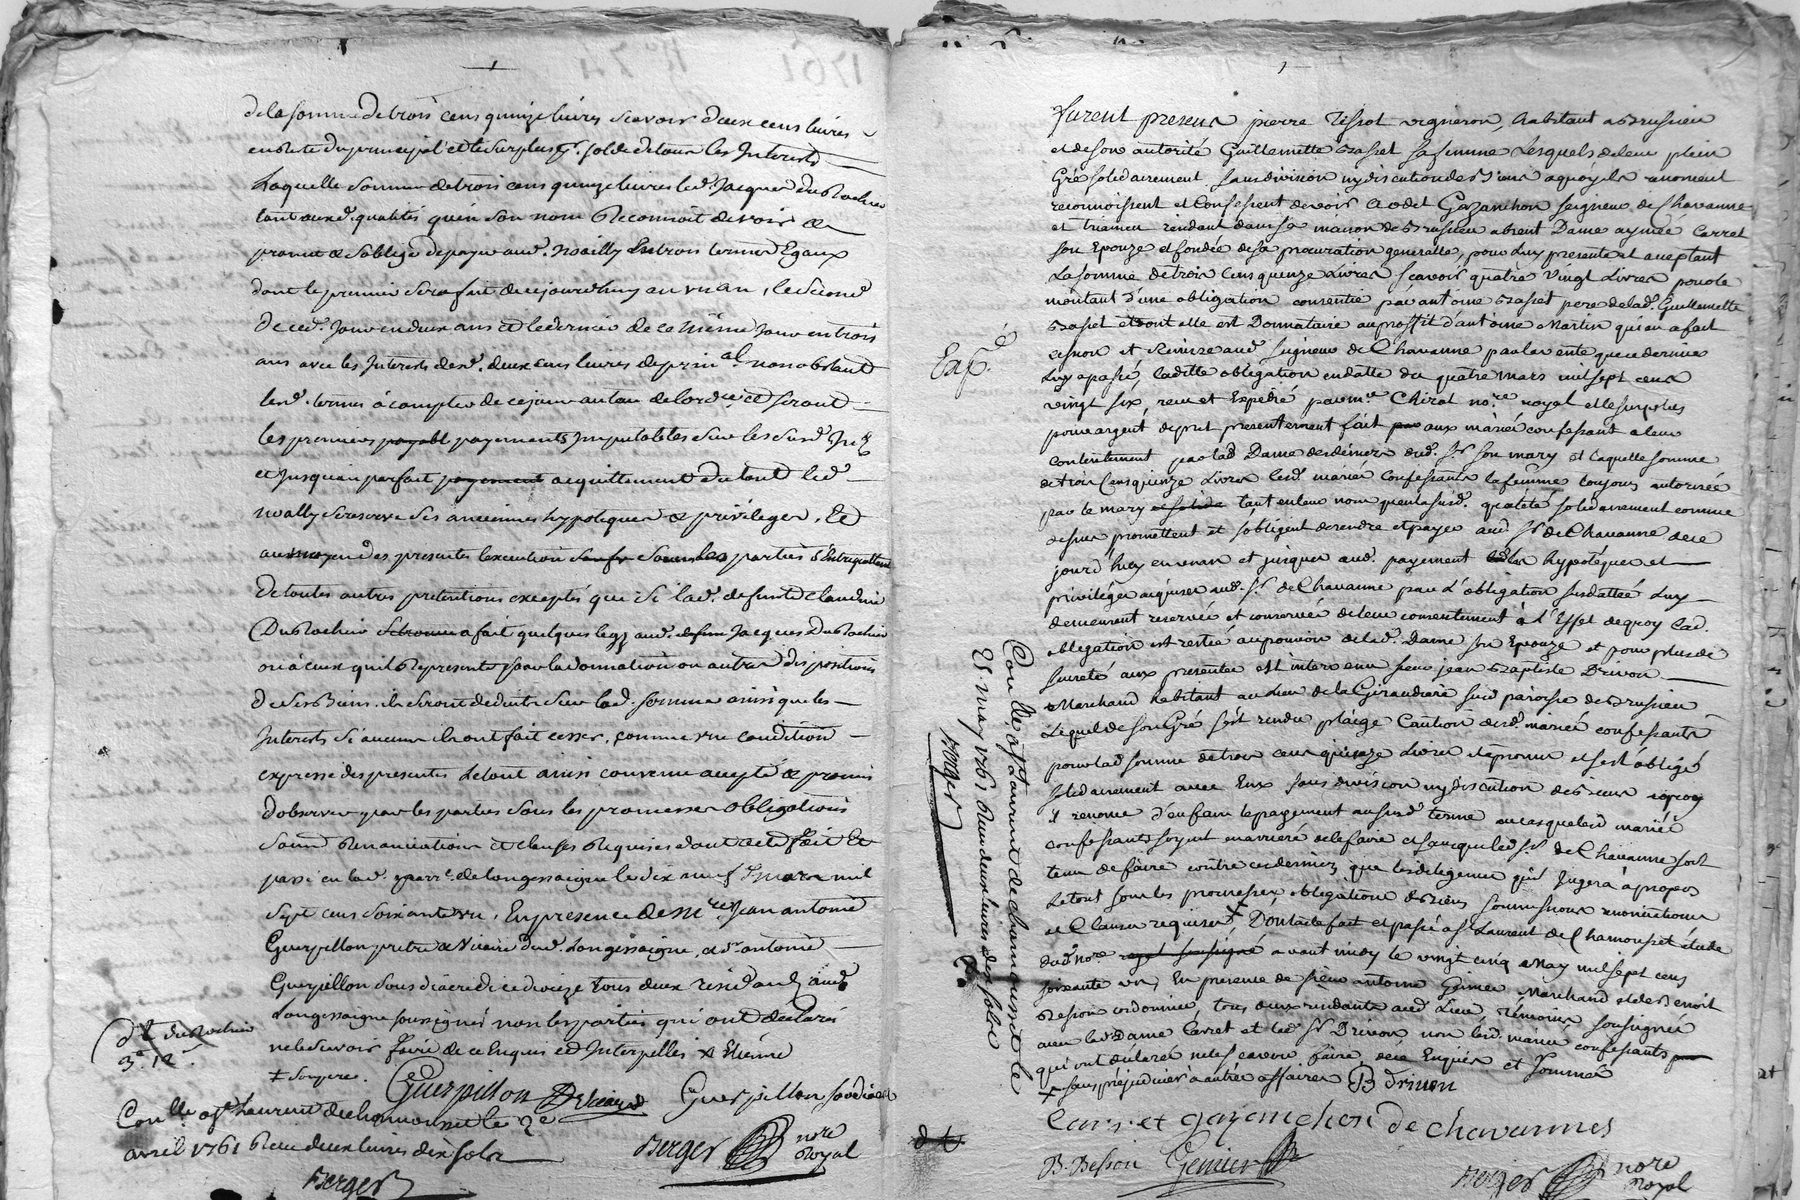 de la somme de trois cens quinze livres scavoir deux cens livres
en reste du principal et le surplus pr. solde de tous les Interests
Laquelle somme de trois cens quinze livres led. Jacques Durochier
tant auxd. qualités qu'en son nom Reconnoit devoir et
promet et s'oblige de payer aud. Noailly en trois termes Egaux
dont le premier sera fait de cejourdhuy en un an, le second
de ced. Jour en deux ans et le dernier de ce même Jour en trois
ans avec les Interests desd. deux cens livres de principal nonobstant
lesd. termes à compter de ce jour au taux de lord.ce et seront
les premiers payable payements Imputables sur les susd. Int.
et Jusqu'au parfait payement acquittement du tout led.
noally se reserve ses anciennes hypoteques et privileges, Et
au moyen des presentes lexecution sauf sous les parties s'Entrequittent
de toutes autres pretentions exceptés que si lad. defunte Claudine
Durochier a fait quelques legs aud. defun Jacques Durochier
ou à ceux qu'il Represente par la donnation ou autres dispositions
de ses Biens ils seront deduits sur lad. somme ainsi que les
Interests si aucuns ils ont fait cesser, comme une condition
expresse des presentes Le tout ainsi convenu accepté et promis
d'observer par les parties sous les promesses obligations
soum. Renonciations et clauses Requises dont acte fait Et
passé en lad. parr. de longessaigne le dix neuf mars mil
sept cens soixante un, En presence de Mre Jean antoine
Guerpillon pretre et vicaire dud. Longessaigne, et sr. antoine
Guerpillon sous diacre de ce dioceze tous deux residants aud.
Longessaigne soussignés non les parties qui ont declarés
ne le sçavoir faire de ce Enquis et Interpellés x Etienne
‡ soupere.
dt durochier
3# 12s
Guerpillon Vicaire Guerpillon soudiacre
Con.lle a st Laurent de chamousset le 2e
avril 1761 Recu deux livres dix sols
Berger
Berger nore Royal
furent presens pierre Tissot vigneron, habitant a Brussieu
et de son autorité Guillemette Basset sa femme Lesquels de leur plein
Gré solidairement sans division ny discution des Biens a quoy ils renoncent
reconnoissent et Confessent devoir a odet Gazanchon seigneur de Chavanne
et rendant dans sa maison de Brussieu absent Dame aymée Carret
son Epouze et fondée de sa procuration generalle, pour Luy presente et aceptant
La somme de trois Cens quinze Livres sçavoir quatre vingt Livres pour le
montant d'une obligation consentie par antoine Basset pere de lad. Guillemette
Basset et dont elle est Donnataire au proffit d'antoine Martin qui en a fait
cession et Remise aud. seigneur de Chavanne par la vente que ce dernier
Luy a passé, laditte obligation en datte du quatre mars mil sept cens
vingt six, receu et Expedié par me Chirat no.re royal et le surplus
pour argent de pret presentement fait aux mariés confessant a leur
contentement par lad. Dame des deniers dud. sr. son mary et Laquelle somme
de trois Cens quinze Livres lesd. mariés confessants la femme toujours autorisée
par le mary et solide tant en leur nom qu'en la susd. qualité solidairement comme
dessus promettent et s'obligent de rendre et payer aud. sr. de Chavanne de ce
jourd'huy en un an et jusques aud. payement les hypotèques et
privilèges acquises aud. sr. de Chavanne par L'obligation susdattée Luy
demeurent reservée et conservée de leur consentement à l'Effet de quoy Lad.
obligation est restée au pouvoir de lad. Dame son Epouze et pour plus de
sureté aux presentes est intervenu sieur jean Baptiste Drivon
Marchand habitant au Lieu de la Giraudiere susd. paroisse de Brussieu
Lequel de son Gré s'est rendu plaige Caution desd. mariés confessants
pour lad. somme de trois cens quinze Livres et promis et s'est obligé
solidairement avec Eux sans division ny discution de Biens a quoy
il renonce d'en faire le payement au susd. terme au cas que lesd. mariés
confessants soyent en arriere de le faire et sans que led. sr. de Chavanne soit
tenu de faire contre ces derniers que les diligences qu'il Jugera à propos
Le tout sous les promesses, obligations de Biens soumissions renonciations
et Clauses requises x Dont acte fait et passé a st Laurent de Chamousset étude
dud. nore royal soussigné avant midy le vingt cinq May mil sept cens
soixante un, En presence de sieur antoine Genier Marchand et de Benoit
Besson cordonnier, tous deux residants aud. Lieu, témoins soussignés
avec lad. Dame Carret et led. sr. Drivon non lesd. mariés confessants
qui ont déclaré ne le sçavoir faire de ce Enquis et sommés
x sans préjudicier a autres affaires B Drivon
Caret gazanchon de chavannes
B. Besson Genier
Berger nore Royal
Exp.é
Con.lle a st Laurent de chamousset le
25 may 1761 Recu deux livres dix sols
Berger